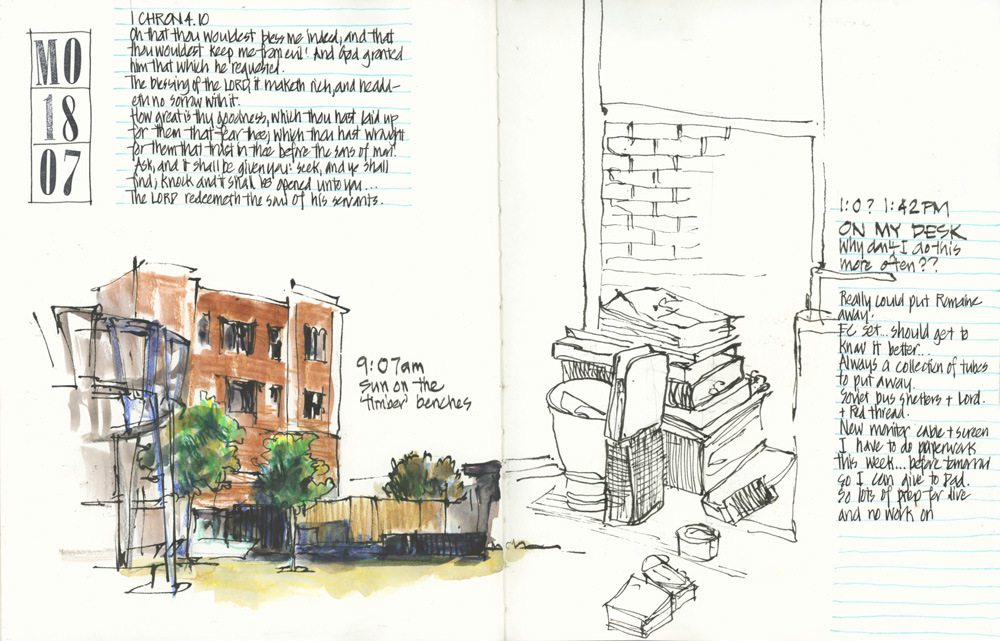 MO
18
07
1 CHRON 4.10
Oh that thou wouldest bless me indeed, and that
thou wouldest keep me from evil! And God granted
him that which he requested.
The blessing of the LORD, it maketh rich, and he add-
eth no sorrow with it.
How great is thy goodness, which thou hast laid up
for them that fear thee; which thou hast wrought
for them that trust in thee before the sons of men!
Ask, and it shall be given you: seek, and ye shall
find; knock and it shall be opened unto you...
The LORD redeemeth the soul of his servants.
9:07am
sun on the
'timber' benches
1:0? 1:42PM
ON MY DESK
Why don't I do this
more often??
Really could put Romaine
away.
EC set... should get to
know it better...
Always a collection of tubes
to put away.
Soviet bus shelters + Lord.
+ Red thread.
New monitor cable + screen
I have to do paperwork
this week... before tomorrow
so I can give to Dad.
So lots of prep for live
and no work on